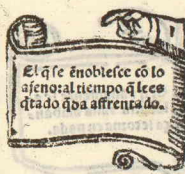 El q̃ se ẽnoblesce cõ lo
ajeno: al tiempo q̃ lees
q̃tado q̃da affrentado.